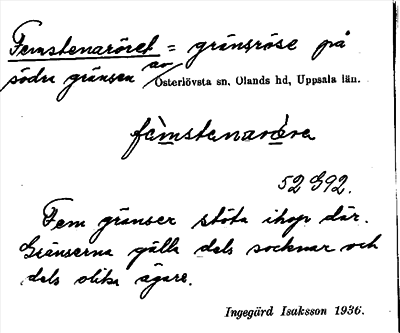 Femstenaröret = gränsröse på
södra gränsen av Österlövsta sn, Olands hd, Uppsala län.
fèmstenarö̀ra
52 G92.
Fem gränser stöta ihop där.
Gränserna gälla dels socknar och
dels olika ägare.
Ingegärd Isaksson 1936.